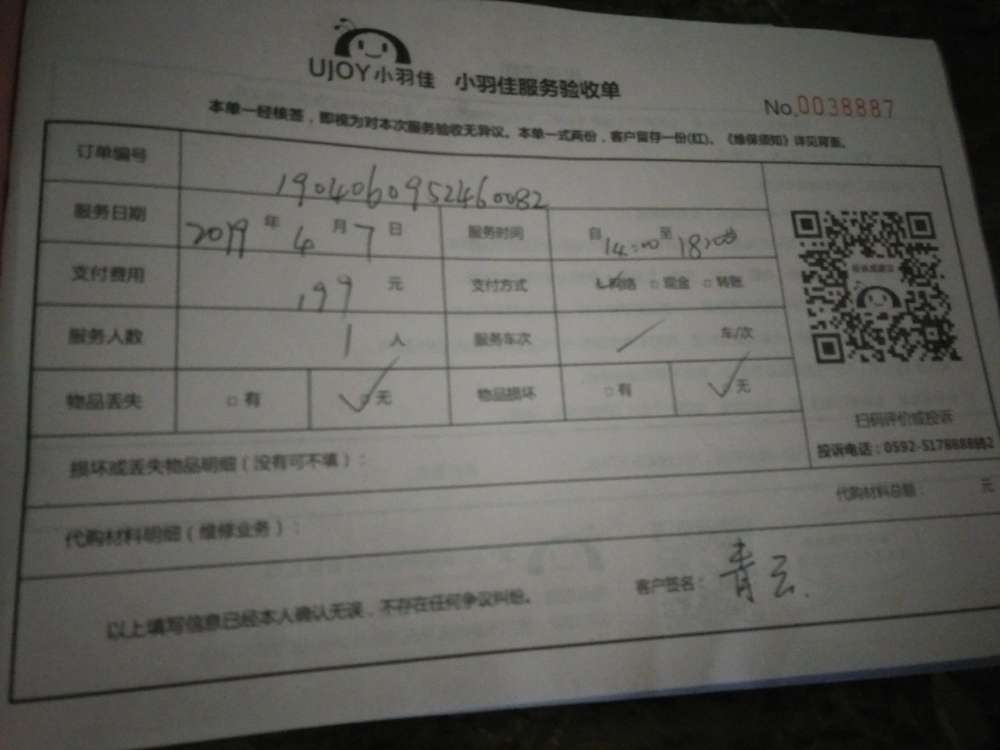 UJOY小羽佳 小羽佳服务验收单
No.0038887
本单一经核签，即视为对本次服务验收无异议。本单一式两份，客户留存一份(红)。《维保须知》详见背面。
订单编号 1904060952460082
服务日期 2019年4月7日 服务时间 自14:00至18:00
支付费用 199元 支付方式 网络 □现金 □转账
服务人数 1人 服务车次 / 车/次
物品丢失 □有 ✓无 物品损坏 □有 ✓无
扫码评价或投诉
投诉电话：0592-5178888
损坏或丢失物品明细（没有可不填）：
代购材料明细（维修业务）： 代购材料总额： 元
以上填写信息已经本人确认无误，不存在任何争议纠纷。 客户签名：青云